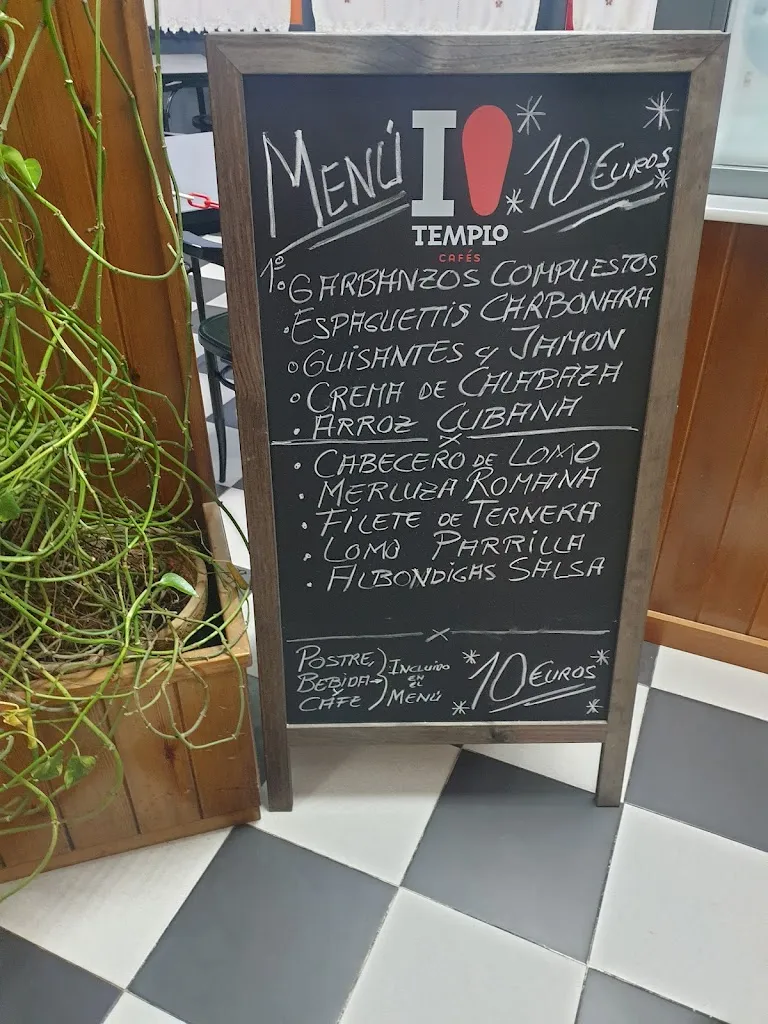 MENÚ
I
10 EUROS
TEMPLO
CAFÉS
1º
• GARBANZOS COMPUESTOS
• ESPAGUETTIS CARBONARA
• GUISANTES y JAMON
• CREMA DE CALABAZA
• ARROZ CUBANA
• CABECERO DE LOMO
• MERLUZA ROMANA
• FILETE DE TERNERA
• LOMO PARRILLA
• ALBONDIGAS SALSA
POSTRE,
BEBIDA
CAFE
INCLUIDO
EN
EL
MENÚ
10 EUROS